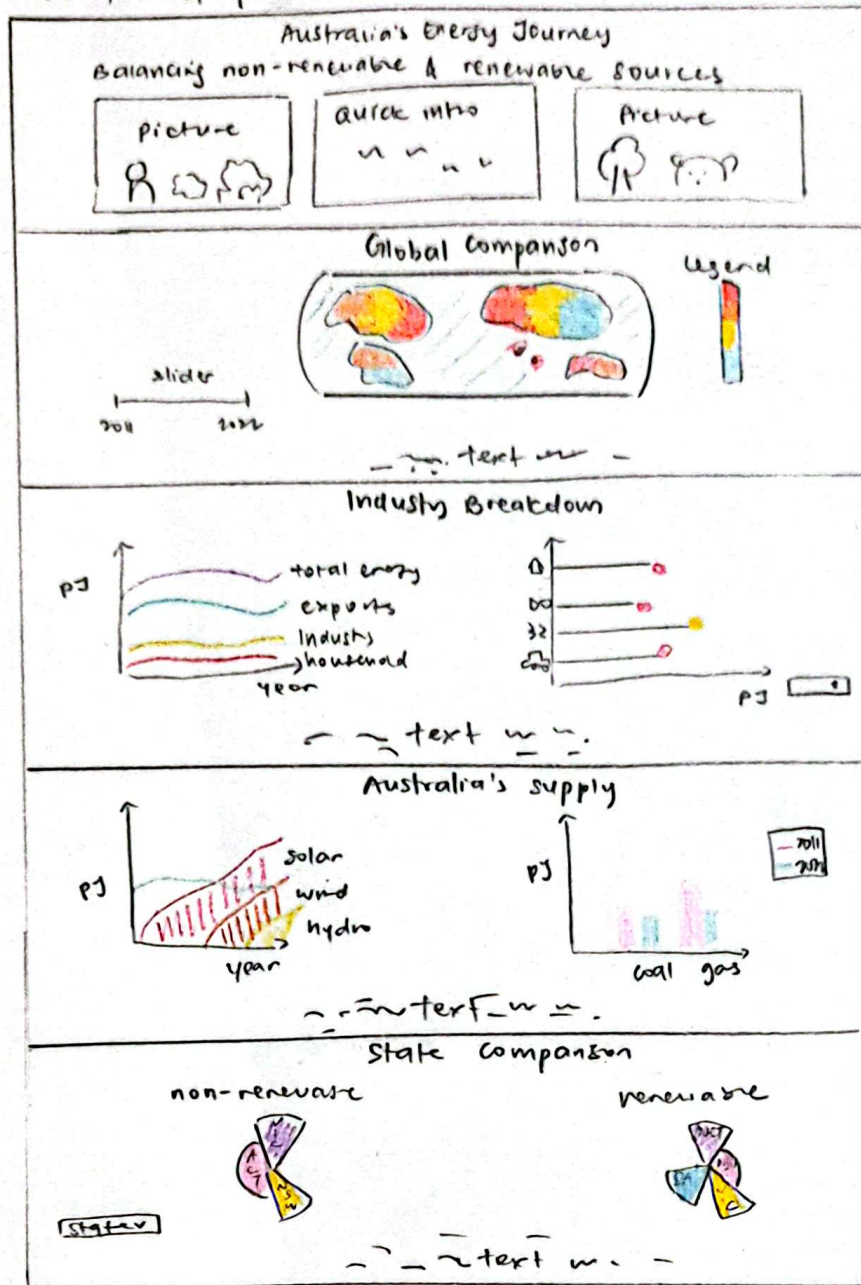 Australia's Energy Journey
Balancing non-renewable & renewable sources
Picture
Quick intro
Picture
Global Comparison
Legend
slider
2011 2022
text
Industry Breakdown
PJ
total energy
exports
Industry
household
year
PJ
text
Australia's supply
PJ
solar
wind
hydro
year
PJ
2011
coal gas
text
State Comparison
non-renewable
renewable
ACT
NSW
SA
State
text